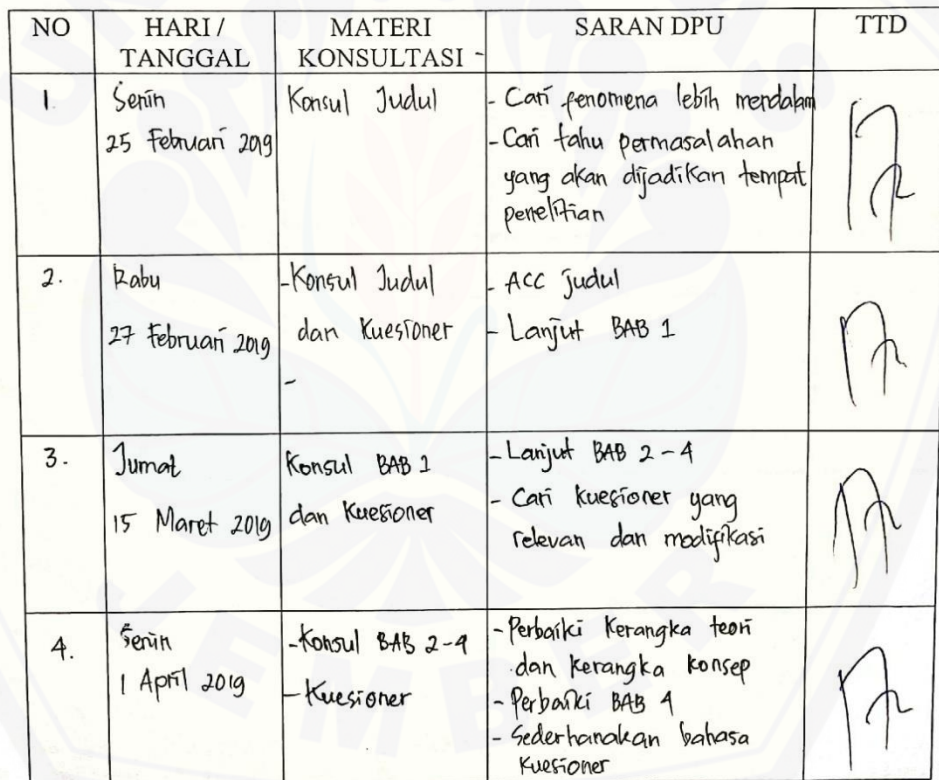 NO HARI / TANGGAL MATERI KONSULTASI - SARAN DPU TTD
1. Senin
25 Februari 2019
Konsul Judul
- Cari fenomena lebih mendalam
- Cari tahu permasalahan
yang akan dijadikan tempat
penelitian
2. Rabu
27 Februari 2019
- Konsul Judul
dan Kuesioner
-
- ACC Judul
- Lanjut BAB 1
3. Jumat
15 Maret 2019
Konsul BAB 1
dan Kuesioner
- Lanjut BAB 2-4
- Cari kuesioner yang
relevan dan modifikasi
4. Senin
1 April 2019
- Konsul BAB 2-4
- Kuesioner
- Perbaiki Kerangka teori
dan kerangka konsep
- Perbaiki BAB 4
- Sederhanakan bahasa
Kuesioner